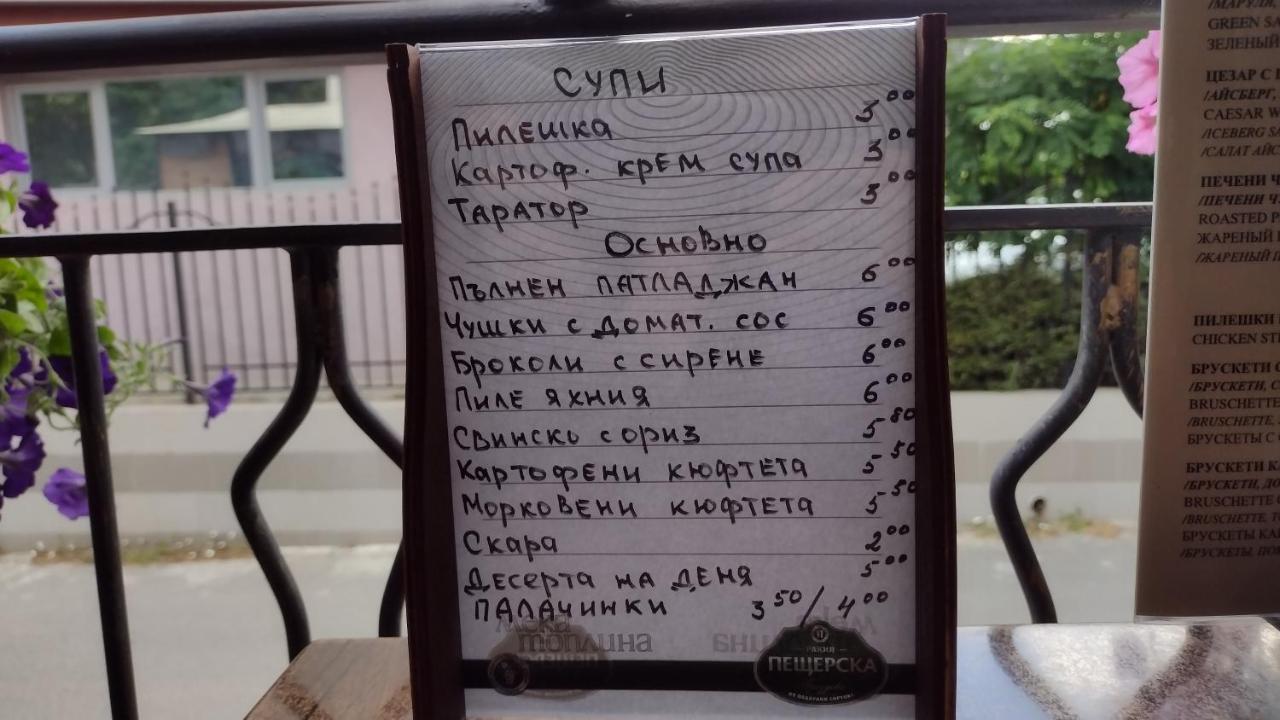 СУПИ
Пилешка 3⁰⁰
Картоф. крем супа 3⁰⁰
Таратор 3⁰⁰
Основно
Пълнен патладжан 6⁰⁰
Чушки с домат. сос 6⁰⁰
Броколи с сирене 6⁰⁰
Пиле яхния 6⁰⁰
Свинско с ориз 5⁸⁰
Картофени кюфтета 5⁵⁰
Морковени кюфтета 5⁵⁰
Скара 2⁰⁰
Десерта на деня 5⁰⁰
ПАЛАЧИНКИ 3⁵⁰/4⁰⁰
мека
топлина
РАКИЯ
ПЕЩЕРСКА
/МАРУЛЯ,
GREEN SA
ЗЕЛЕНЫЙ
ЦЕЗАР С
/АЙСБЕРГ,
CAESAR W
/ICEBERG
/САЛАТ АЙС
ПЕЧЕНИ
/ПЕЧЕНИ
ROASTED
ЖАРЕНЫЙ
/ЖАРЕНЫЙ
ПИЛЕШКИ
CHICKEN ST
БРУСКЕТИ
/БРУСКЕТИ,
BRUSCHETTE
/BRUSCHETTE,
БРУСКЕТЫ С
БРУСКЕТИ
/БРУСКЕТИ,
BRUSCHETTE
/BRUSCHETTE,
БРУСКЕТЫ
/БРУСКЕТЫ,